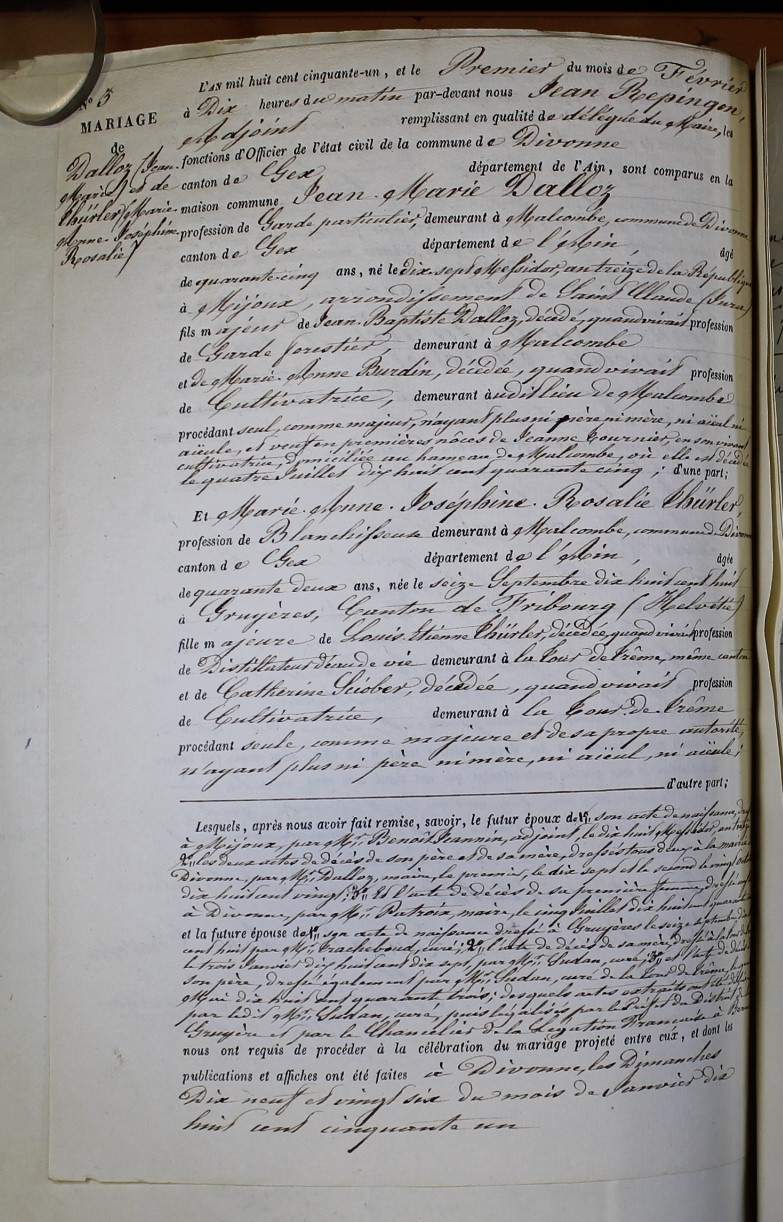 N° 3
MARIAGE
de
Dalloz (Jean-
Marie) et de
Thürler (Marie-
Anne-Joséphine
Rosalie)
L'AN mil huit cent cinquante-un, et le Premier du mois de Février
à Dix heures du matin par-devant nous Jean Repingon,
Adjoint remplissant en qualité de délégué du Maire, les
fonctions d'Officier de l'état civil de la commune de Divonne
canton de Gex département de l'Ain, sont comparus en la
maison commune Jean-Marie Dalloz
profession de Garde particulier, demeurant à Malcombe, commune de Divonne
canton de Gex département de l'Ain, âgé
de quarante-cinq ans, né le dix sept Messidor, an treize de la République
à Mijoux, arrondissement de Saint Claude (Jura)
fils majeur de Jean-Baptiste Dalloz, décédé, quand vivait profession
de Garde forestier, demeurant à Malcombe
et de Marie-Anne Burdin, décédée, quand vivait profession
de Cultivatrice, demeurant audit lieu de Malcombe
procédant seul, comme majeur, n'ayant plus ni père ni mère, ni aïeul ni
aïeule, et veuf en premières noces de Jeanne Fournier, en son vivant
cultivatrice, domiciliée au hameau de Malcombe, où elle est décédée
le quatre Juillet dix huit cent quarante cinq ; d'une part;
Et Marie-Anne-Joséphine-Rosalie Thürler,
profession de Blanchisseuse demeurant à Malcombe, commune de Divonne
canton de Gex département de l'Ain, âgée
de quarante deux ans, née le seize Septembre dix huit cent huit
à Gruyères, Canton de Fribourg (Helvétie)
fille majeure de Louis-Etienne Thürler, décédée, quand vivait profession
de Distillateur d'eau de vie demeurant à la Tour de Trême, même canton
et de Catherine Sciober, décédée, quand vivait profession
de Cultivatrice, demeurant à la Tour de Trême
procédant seule, comme majeure et de sa propre autorité,
n'ayant plus ni père ni mère, ni aïeul, ni aïeule;
d'autre part;
Lesquels, après nous avoir fait remise, savoir, le futur époux de 1° son acte de naissance,
à Mijoux, par Mr. Benoît Jeannin, adjoint, le dix huit Messidor, an treize
2° les deux actes de décès de son père et de sa mère, dressés tous deux à la mairie
Divonne, par Mr. Dalloz, maire, le premier, le dix sept et le second le vingt
dix huit cent vingt; 3° Et l'acte de décès de sa première femme, dressé
à Divonne, par Mr. Patroix, maire, le cinq Juillet dix huit cent quarante
et la future épouse de 1° son acte de naissance dressé à Gruyères le seize septembre dix
cent huit par Mr. Fracheboud, curé; 2° l'acte de décès de sa mère, dressé à la
le trois Janvier dix huit cent dix sept par Mr. Gudan, curé; 3° et l'acte de décès
son père, dressé également par Mr. Gudan, curé de la Tour de Trême, le
Mai dix huit cent quarante trois; desquels actes extraits ont été
par ledit Mr. Gudan, curé, puis légalisés par le Préfet du District
Gruyère et par le Chancelier de la Légation Française à Berne
nous ont requis de procéder à la célébration du mariage projeté entre eux, et dont les
publications et affiches ont été faites à Divonne, les Dimanches
Dix neuf et vingt six du mois de Janvier dix
huit cent cinquante un